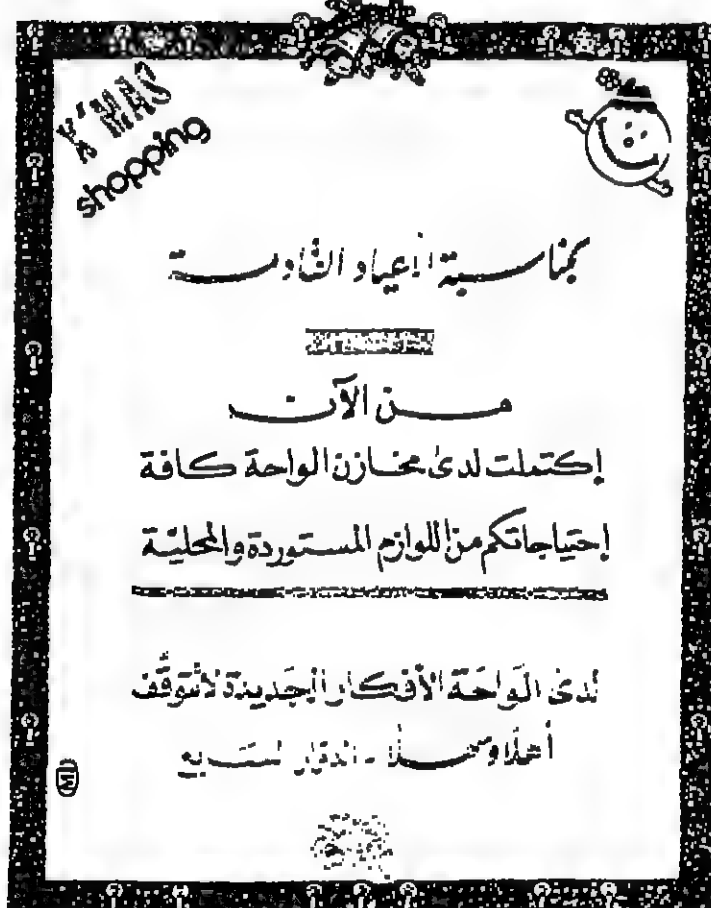 X'MAS
shopping
بمناسبة الأعياد القادمة
من الآن
إكتملت لدى مخازن الواحة كافة
إحتياجاتكم من اللوازم المستوردة والمحلية
لدى الواحة الأفكار الجديدة لا تتوقف
أهلا وسهلا - الدوار السابع